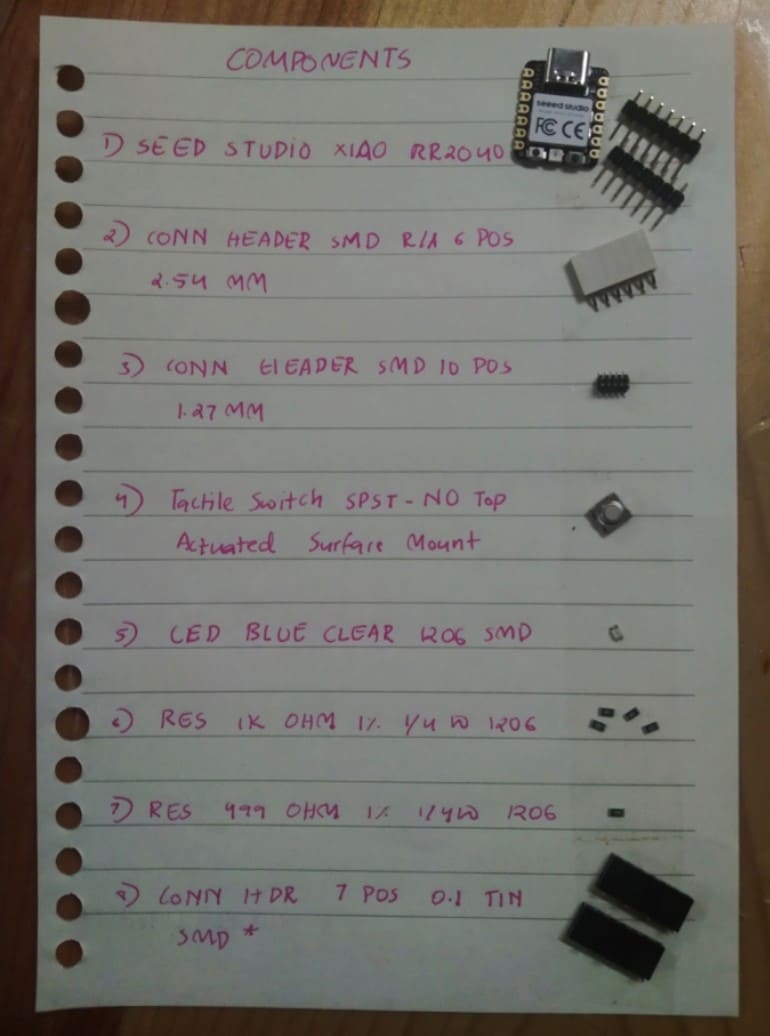 COMPONENTS
1) SEED STUDIO XIAO RR2040
seeed studio
FC CE
2) CONN HEADER SMD R/A 6 POS
2.54 MM
3) CONN HEADER SMD 10 POS
1.27 MM
4) Tactile Switch SPST-NO Top
Actuated Surface Mount
5) LED BLUE CLEAR 1206 SMD
6) RES 1K OHM 1% 1/4 W 1206
7) RES 499 OHM 1% 1/4W 1206
8) CONN HDR 7 POS 0.1 TIN
SMD *